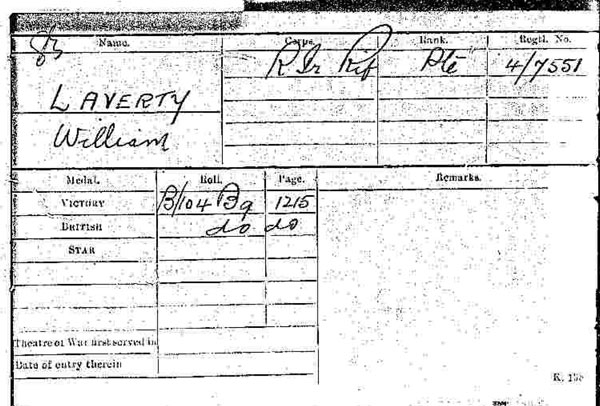 Name. Corps. Rank. Regtl. No.
R Ir Rif Pte 4/7551
LAVERTY
William
Medal. Roll. Page. Remarks.
VICTORY B/104 B9 1215
BRITISH do do
STAR
Theatre of War first served in
Date of entry therein